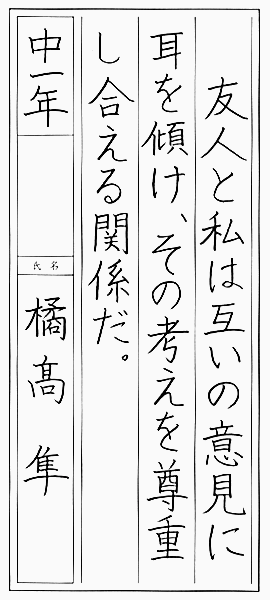 友人と私は互いの意見に
耳を傾け、その考えを尊重
し合える関係だ。
中一年
氏名
橘髙隼